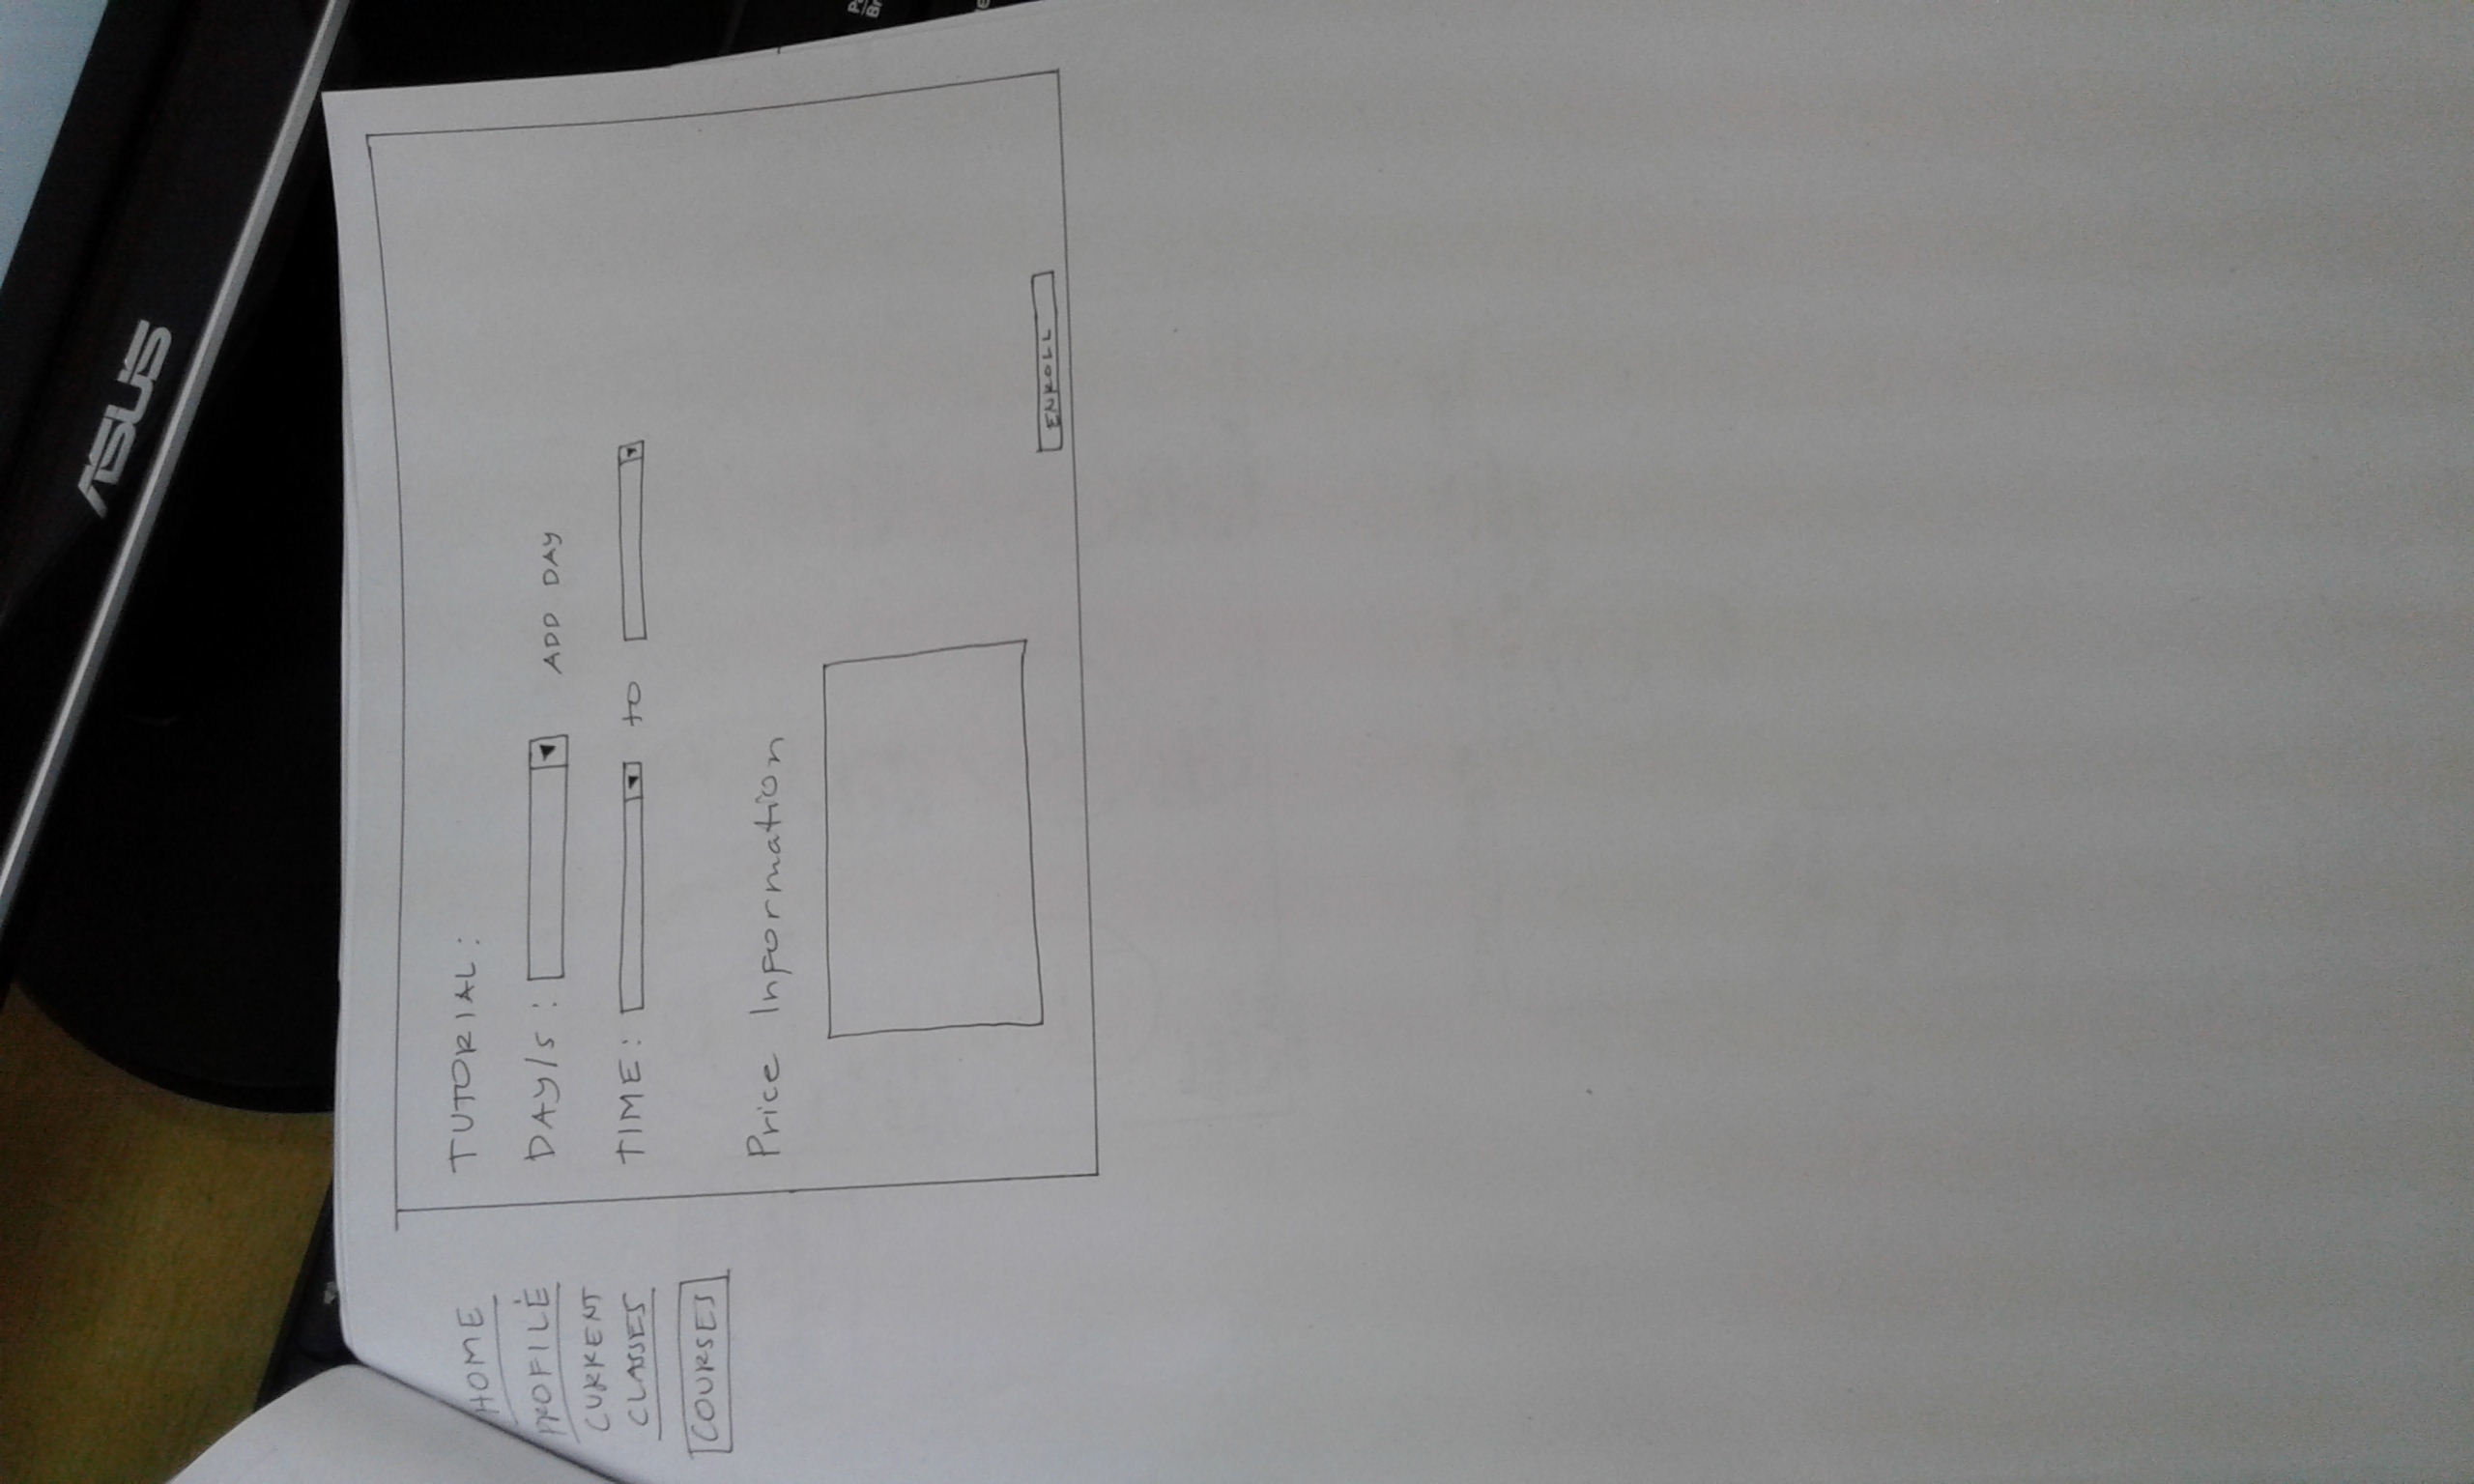 ASUS
HOME
PROFILE
CURRENT
CLASSES
COURSES
TUTORIAL:
DAY/S: ADD DAY
TIME: to
Price Information
ENROLL